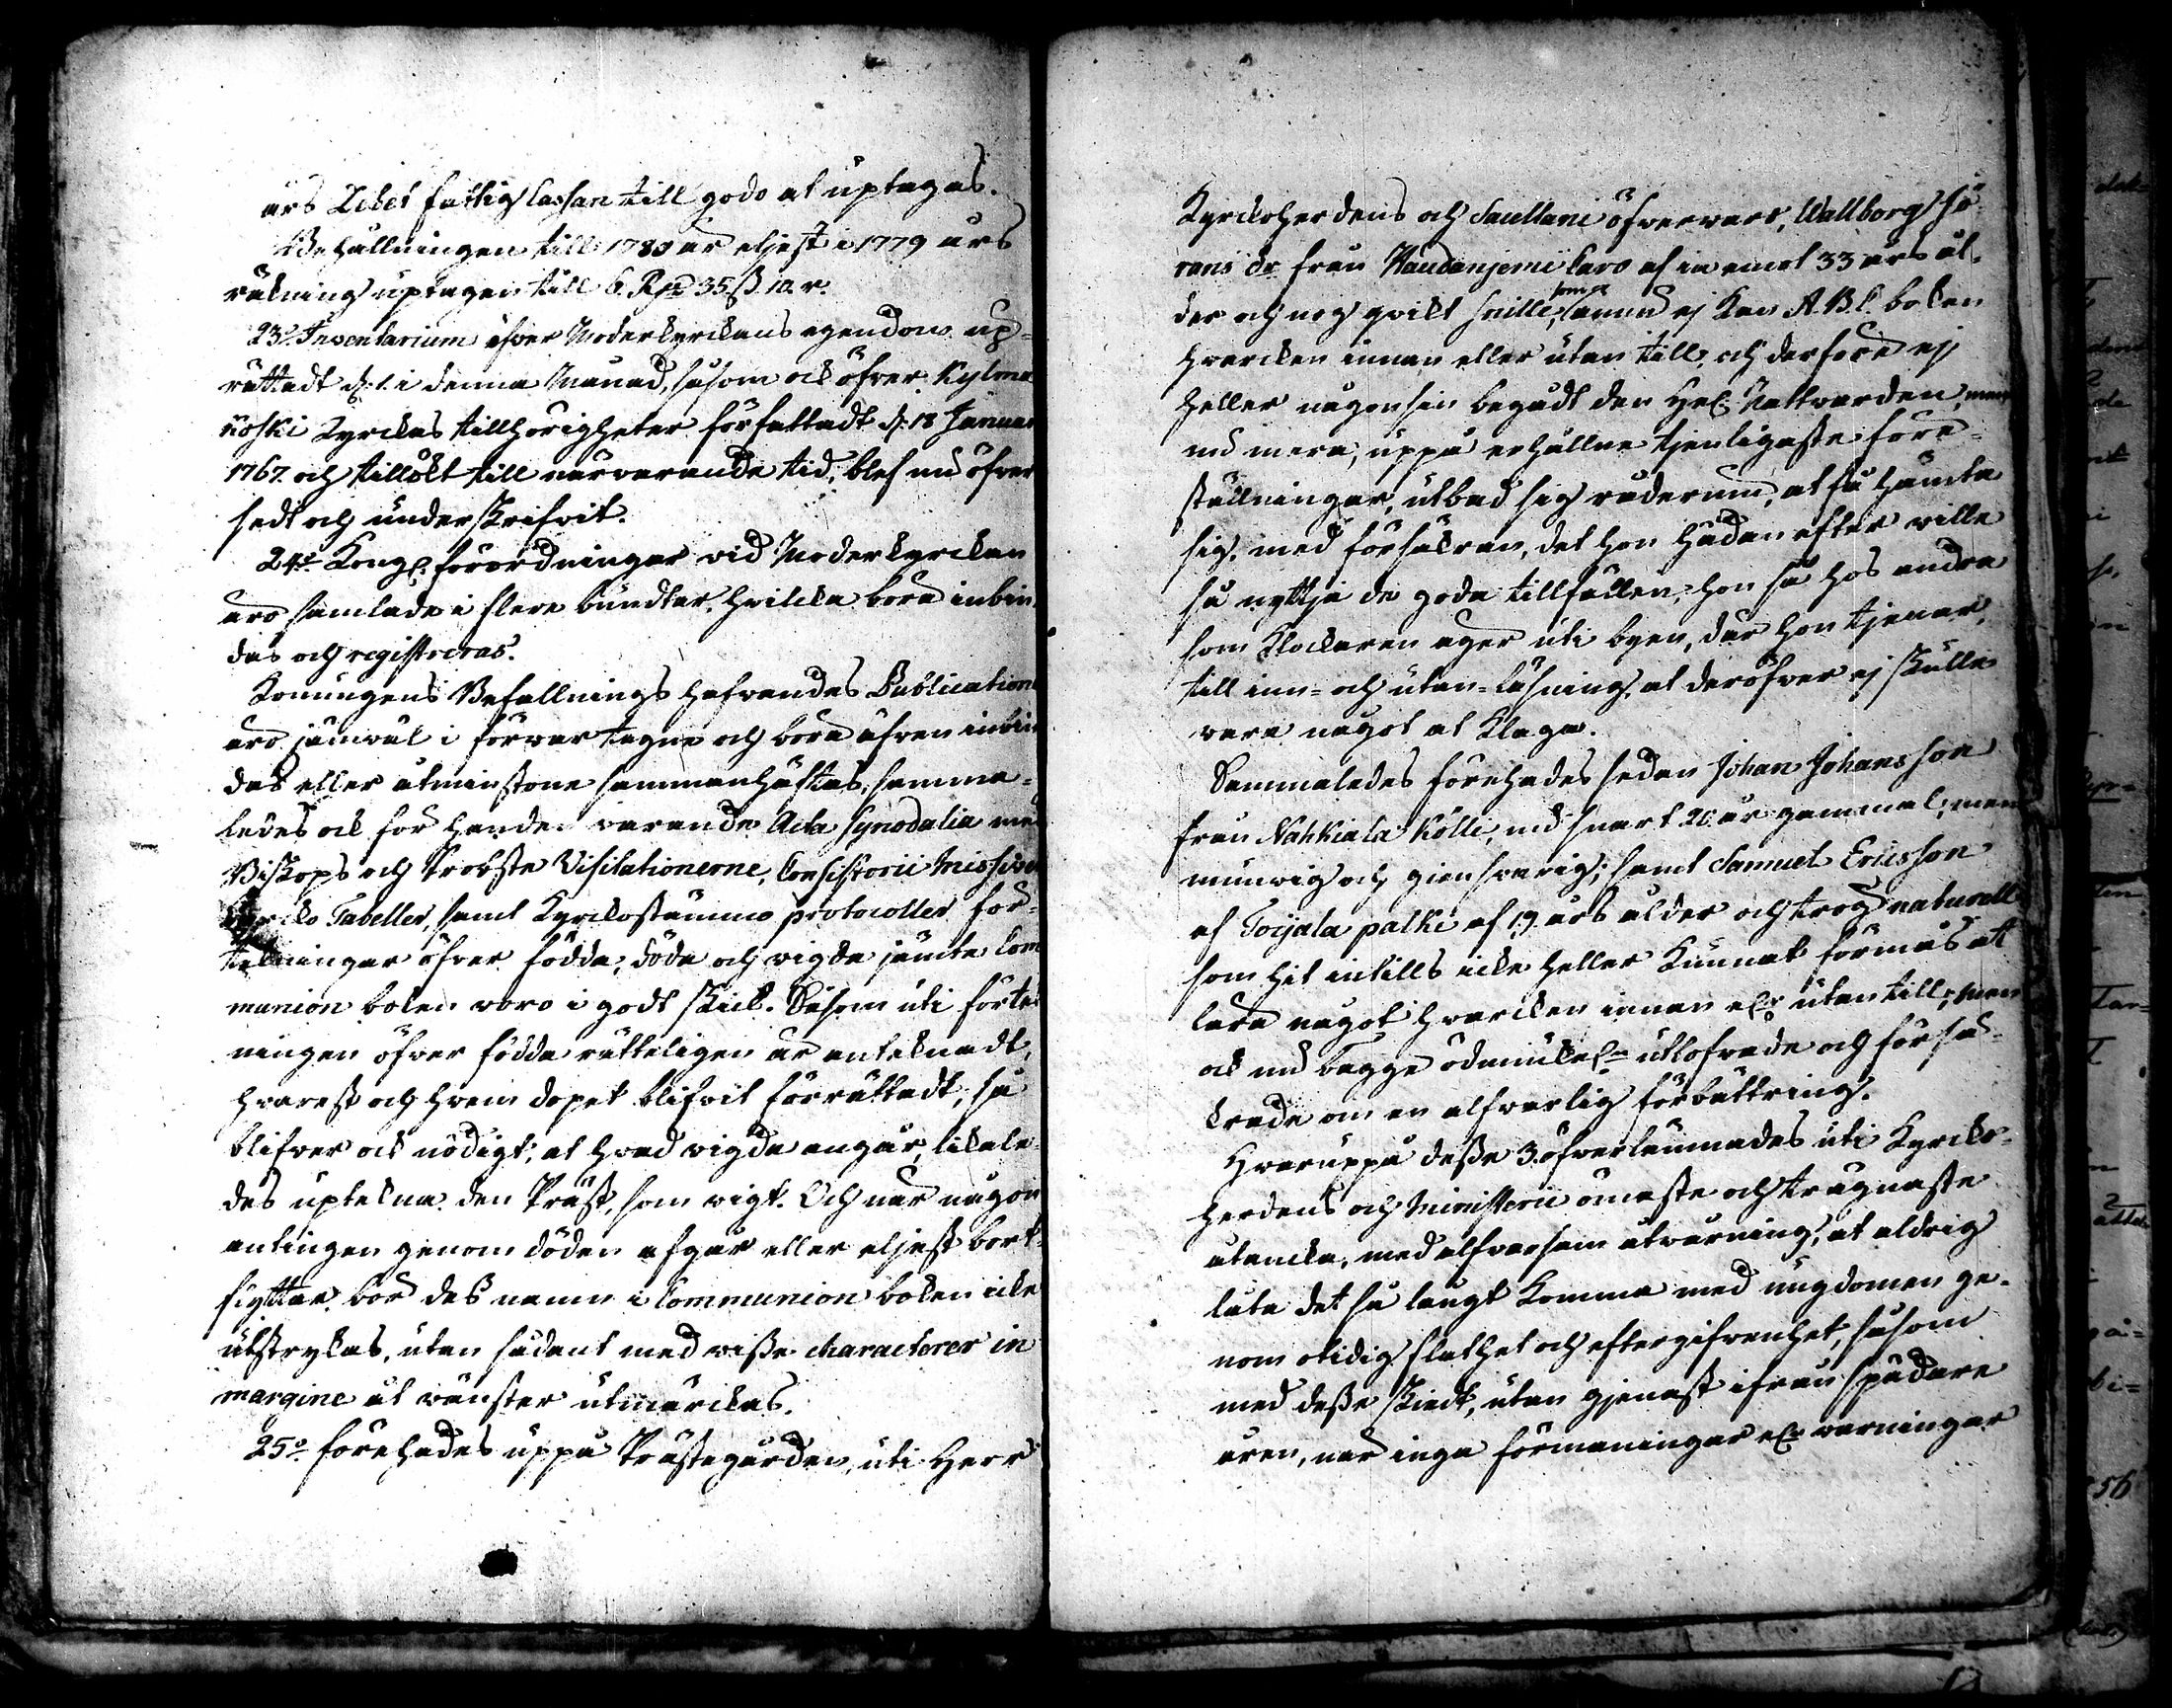 års Xebet fattig Cassan till godo at uptagas.
Behållningen till 1780 är eljest i 1779 års
räkning uptagen till 6. Rd 35 ß 10. r.
23o Inventarium öfver Moderkyrckans egendom up-
rättadt d. 1. i denna Månad, såsom ock öfver Kylmä
koski Kyrckas tillhörigheter författadt d. 18 Januar
1767. och tillökt till närvarande tid, blef nu öfver
sedt och underskrifvit.
24o Kongl. förordningar vid Moderkyrckan
äro samlade i flere bundtar, hvilcka böra inbin
das och registreras.
Konungens Befallnings hafvandes Publication
äro jämväl i förvar tagne och böra äfven inbin
das eller åtminstone sammanhäftas, samma-
ledes ock för handen varande Acta Synodalia med
Biskops och Probste Visitationerne, Consistorii Missiver
Kyrcko Tabeller, samt Kyrckostämmo protocoller för-
tekningar öfver födda, döda och vigda jämte Com
munion boken voro i godt skick. Såsom uti förtek
ningen öfver födda rätteligen är anteknadt,
hvarest och hvem dopet blifvit förrättadt, så
blifver ock nödigt, at hvad vigda angår, likale-
des uptekna den Präst, som vigt. Och når någon
antingen genom döden afgår eller eljest bort-
flyttar, bör des namn i Communion boken icke
utstrykas, utan sådant med visse characterer in
margine åt vänster utmärckas.
25o förehades uppå Prästegården, uti Herr
Kyrckoherdens och Sacellani öfvervaro, Wallborg Sö
rens dr från Haudanjemi Caro af in emot 33 års ål-
der och nog qvickt snille, som ej Kan A.B.C. boken
hvarcken innan eller utan till, och derföre ej
heller någonsin begådt den Hel. Nattvarden, men
nu mera, uppå erhållne tjenligaste före-
ställningar, utbad sig råderum, at få hämta
sig, med försäkran, det hon hädanefter ville
så nyttja de goda tillfällen, hon så hos andra
som Klockaren äger uti byen, där hon tjenar,
till inn- och utan-läsning, at deröfver ej skulle
vara något at Klaga.
Sammaledes förehades sedan Johan Johansson
från Nahkiala Kölli, nu snart 20. år gammal, men
munvig och giensvarig; samt Samuel Ericsson
af Toijala palki af 19. års ålder och trög naturell
som hit intills icke heller Kunnat förmås att
lära något hvarcken innan elr utan till; men
ock nu bägge ödmiukel. utlofvade och försä-
krade om en alfvarlig förbättring.
Hvaruppå desse 3. öfverlämnades uti Kyrcko-
herdens och Ministerii ömaste och trägnaste
åtancka, med alfvarsam åtvarning, at aldrig
låta det så långt Komma med ungdomen ge-
nom otidig slathet och eftergifvenhet, såsom
med desse skiedt, utan gjenast ifrån spädare
åren, när inga förmaningar elr varningar
56